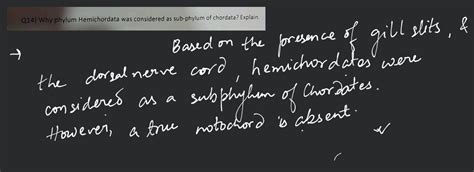 Q14) Why phylum Hemichordata was considered as sub-phylum of chordata? Explain.
→ Based on the presence of gill slits, &
the dorsal nerve cord, hemichordates were
considered as a subphylum of Chordates.
However, a true notochord is absent.